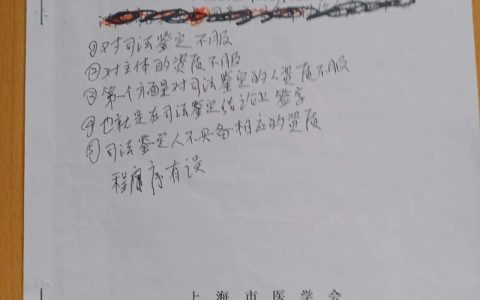 ①对司法鉴定不服
②对主体的资质不服
③第一方面是对司法鉴定的人资质不服
④也就是在司法鉴定结论上签字
⑤司法鉴定人不具备相应的资质
程序有误
上海市医学会